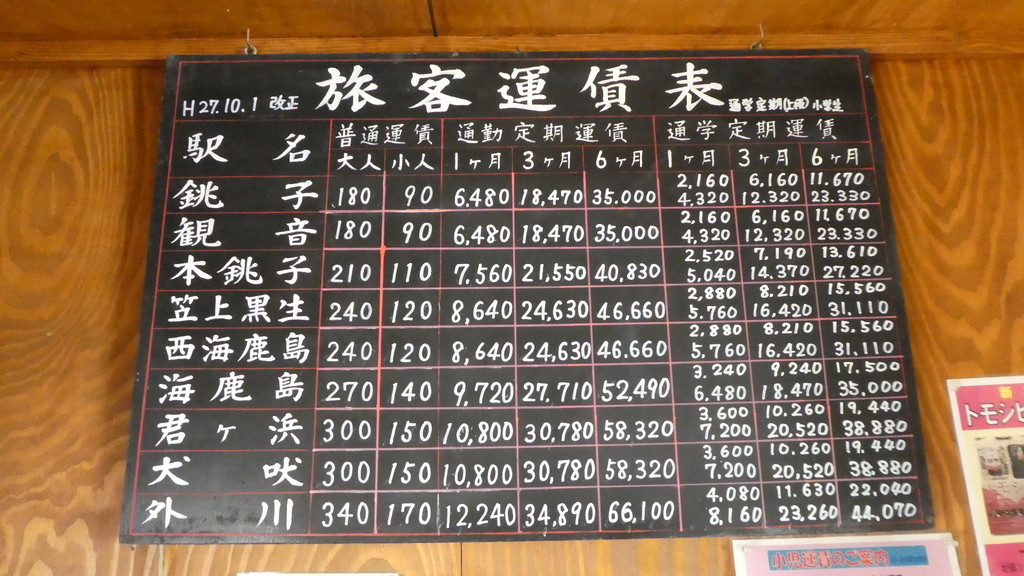 旅客運賃表
H27.10.1 改正
通学定期(上段)小学生
駅名 普通運賃 通勤定期運賃 通学定期運賃
大人 小人 1ヶ月 3ヶ月 6ヶ月 1ヶ月 3ヶ月 6ヶ月
2,160 6,160 11.670
銚子 180 90 6,480 18,470 35.000 4,320 12.320 23.330
2,160 6,160 11,670
観音 180 90 6,480 18,470 35,000 4,320 12,320 23.330
2,520 7.190 13.610
本銚子 210 110 7.560 21,550 40,830 5,040 14.370 27.220
2,880 8.210 15.560
笠上黒生 240 120 8,640 24,630 46,660 5.760 16,420 31.110
2,880 8.210 15.560
西海鹿島 240 120 8,640 24,630 46.660 5,760 16,420 31,110
3,240 9,240 17.500
海鹿島 270 140 9,720 27,710 52,490 6,480 18,470 35,000
3,600 10.260 19,440
君ヶ浜 300 150 10,800 30,780 58,320 7,200 20,520 38,880
3,600 10.260 19,440
犬吠 300 150 10,800 30,780 58,320 7,200 20,520 38,880
4,080 11.630 22,040
外川 340 170 12,240 34,890 66,100 8,160 23,260 44,070
小児運賃のご案内
トモシ